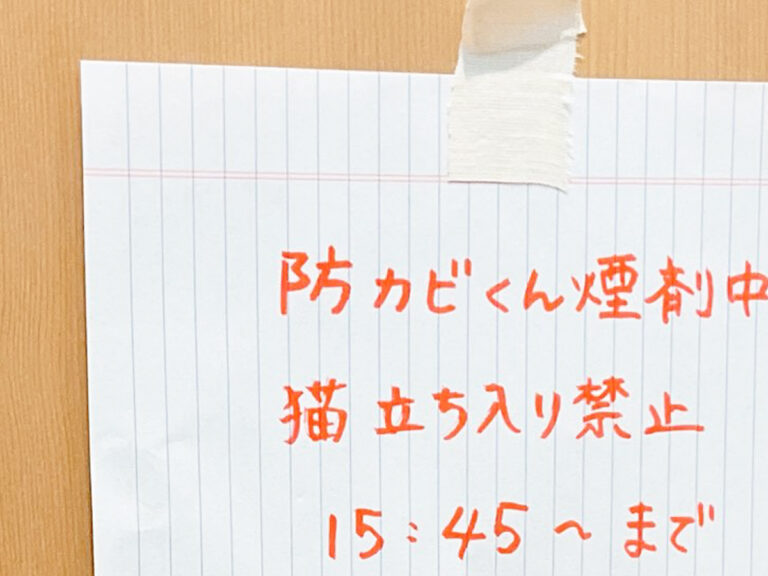 防カビくん煙剤中
猫立ち入り禁止
15:45～まで